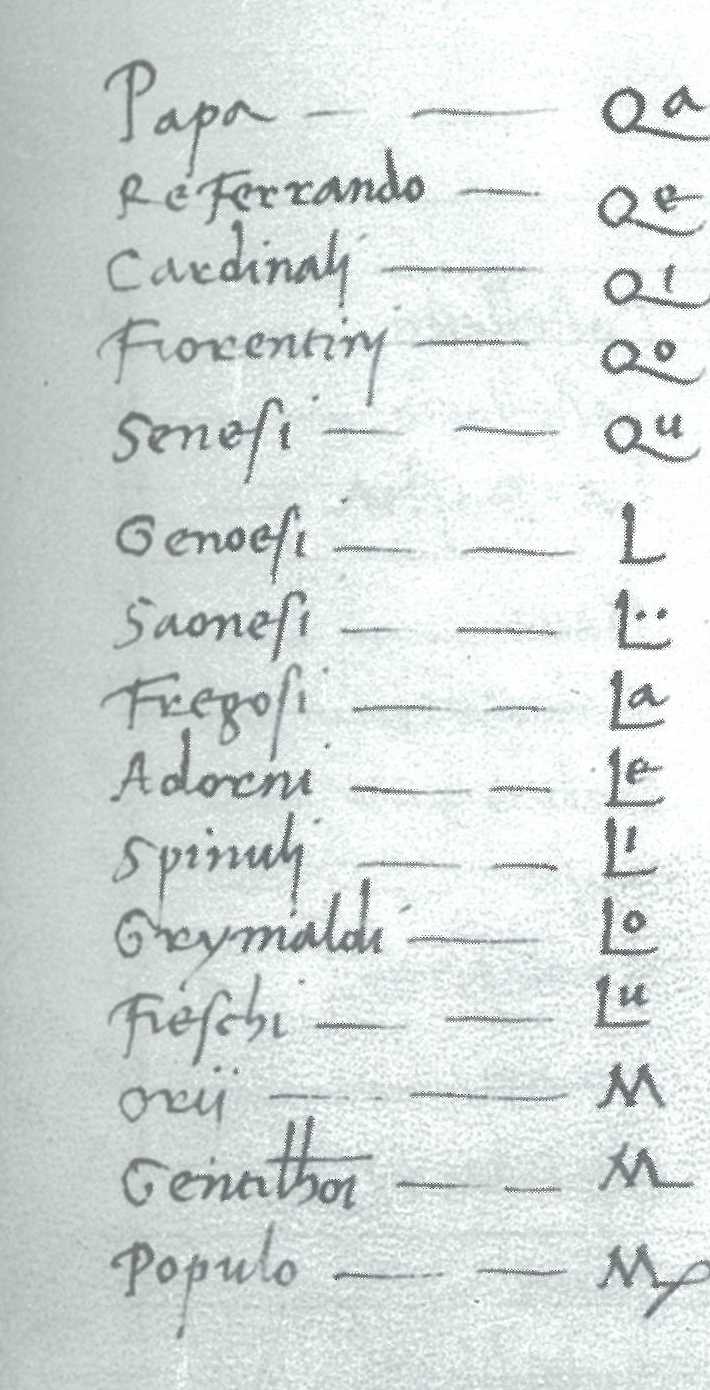 Papa — — Qa
Re Ferrando — Qe
Cardinalj — Qi
Fiorentinj — Qo
Senesi — — Qu
Genoesi — — L
Saonesi — — L··
Fregosi — — La
Adorni — — Le
Spinulj — — Li
Grymaldi — Lo
Fieschi — — Lu
Orij — — M
— — M
Populo — — Mp